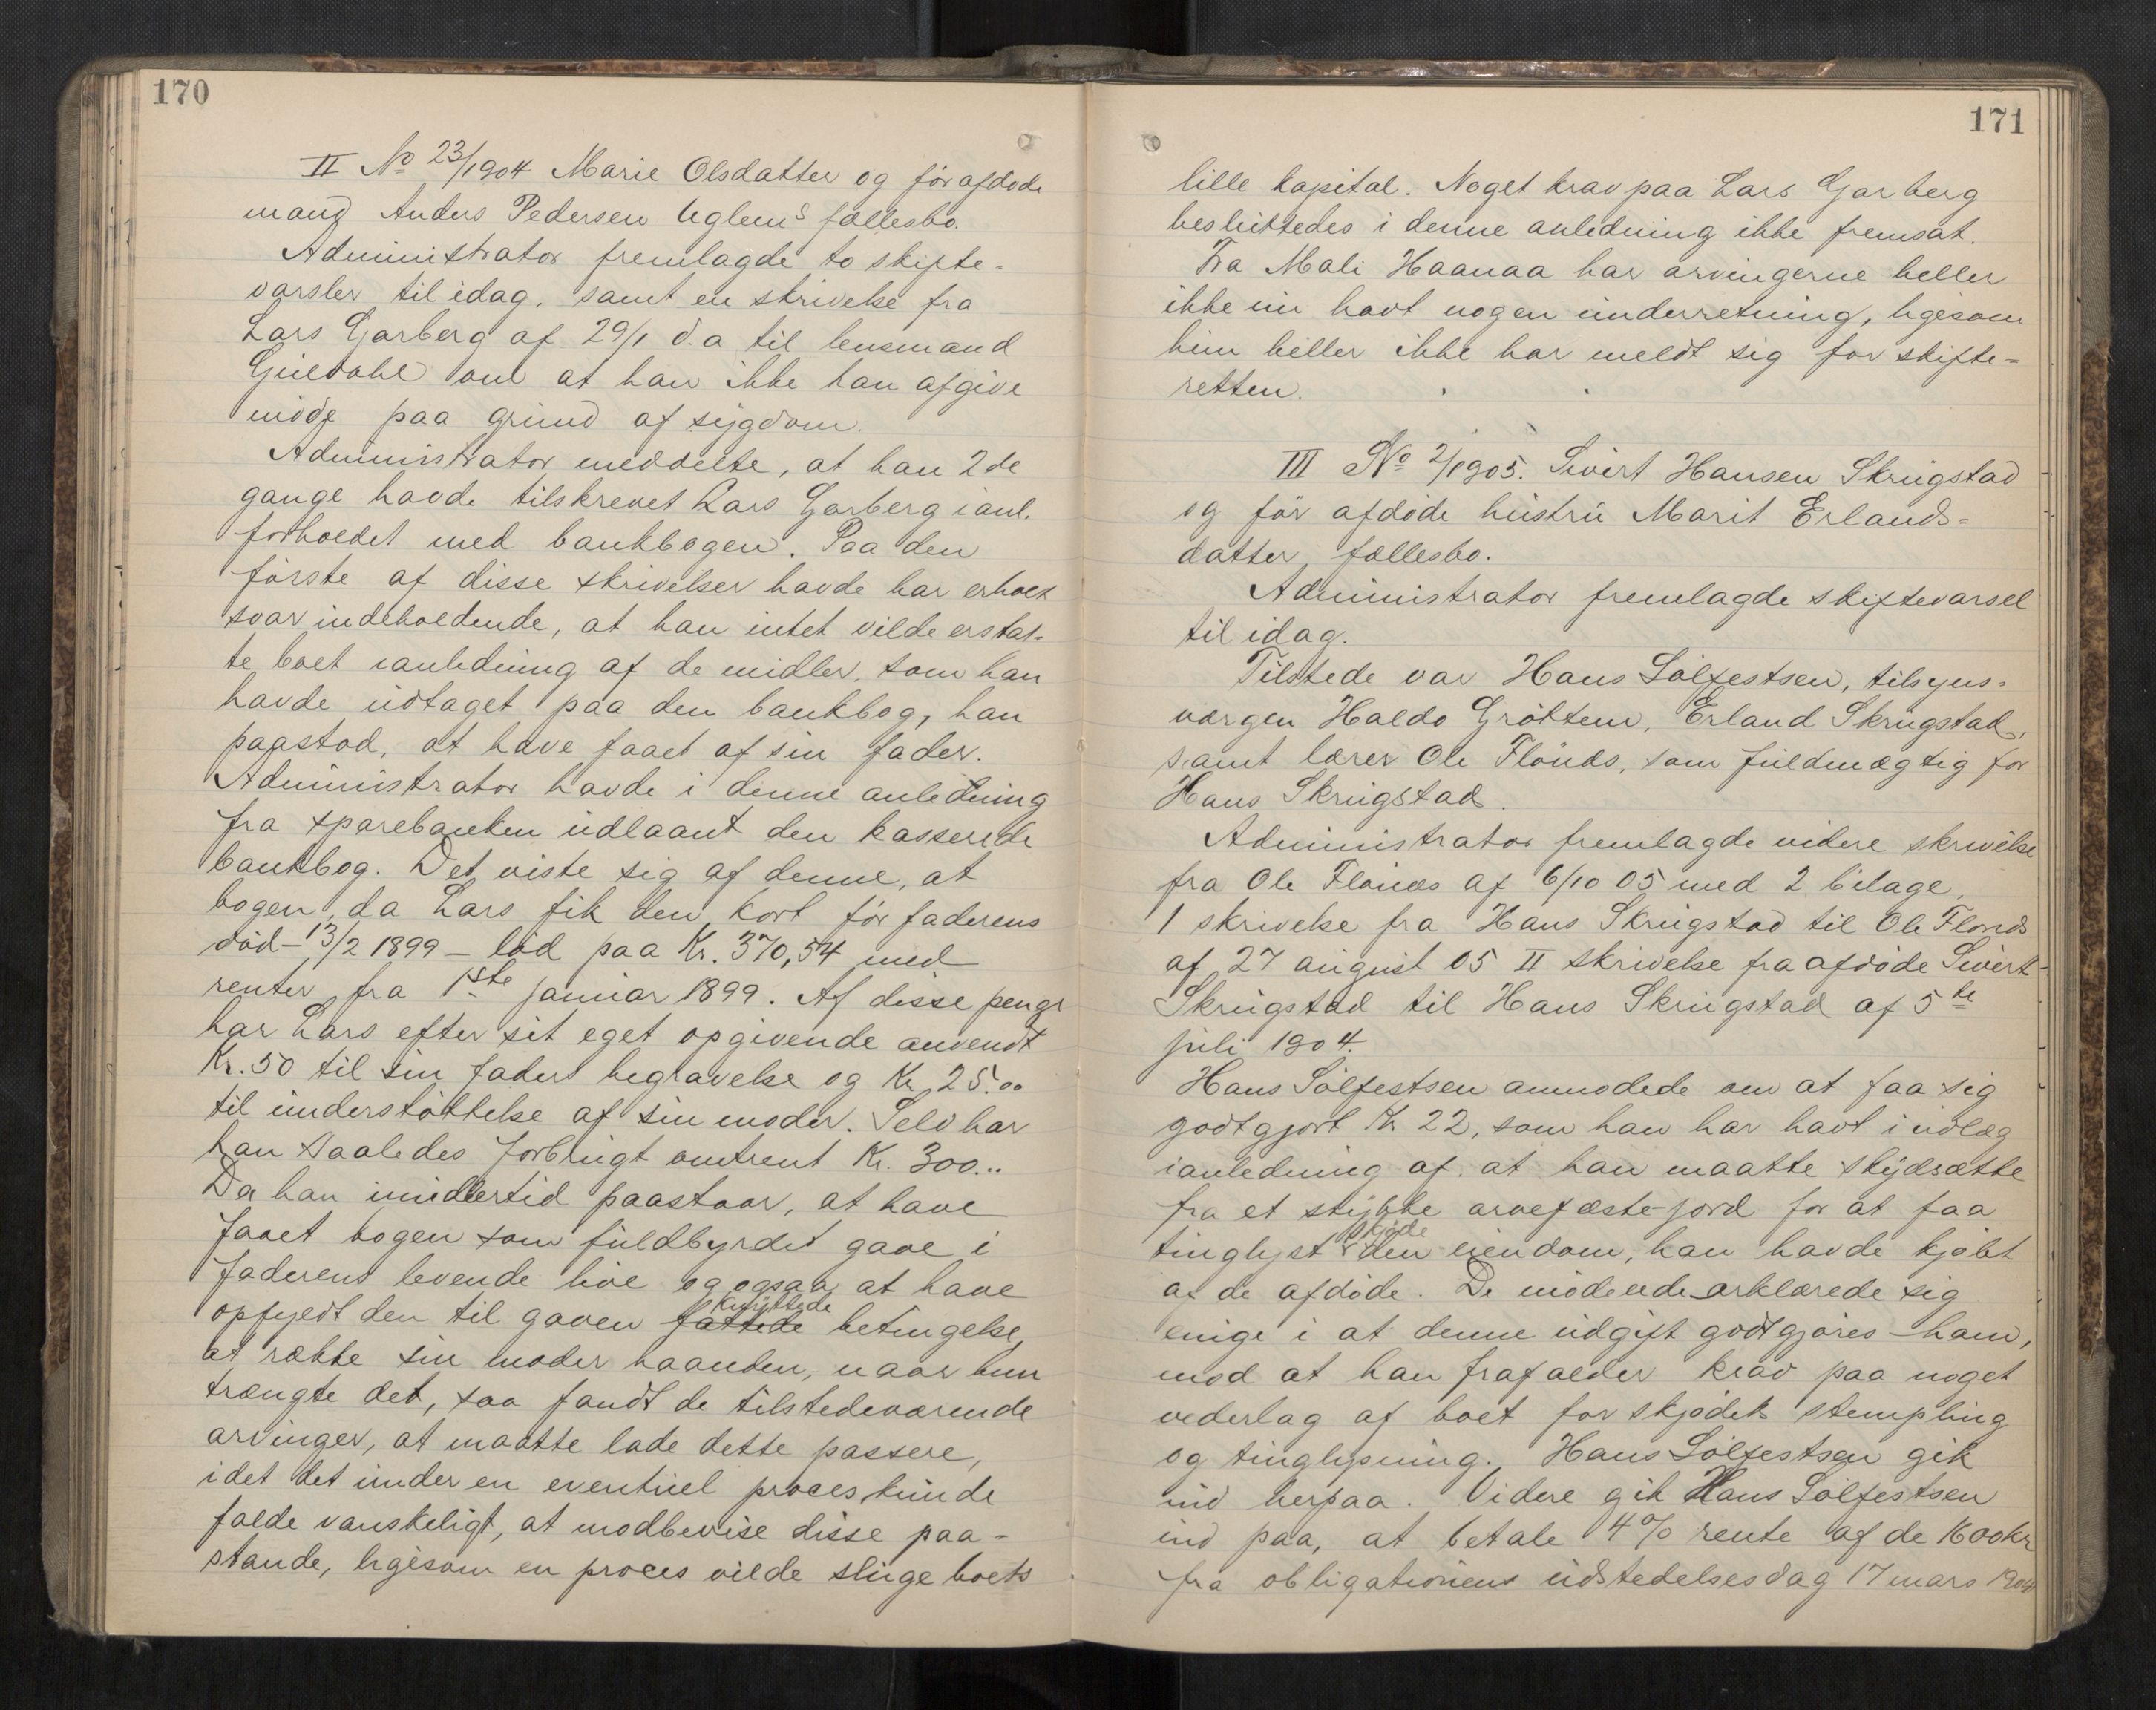 170
II No 23/1904 Marie Olsdatter og før afdøde
mand Anders Pedersen Uglems fællesbo.
Administrator fremlagde to skifte-
varsler til idag, samt en skrivelse fra
Lars Garberg af 29/1 d.a til lensmand
Guldahl om at han ikke kan afgive
møde paa grund af sygdom.
Administrator meddelte, at han 2de
gange havde tilskrevet Lars Garberg i anl.
forholdet med bankbogen. Paa den
første af disse skrivelser havde har erholt
svar indeholdende, at han intet vilde erstat-
te boet i anledning af de midler, som han
havde udtaget paa den bankbog, han
paastod, at have faaet af sin fader.
Administrator havde i denne anledning
fra sparebanken udlaant den kasserede
bankbog. Det viste sig af denne, at
bogen, da Lars fik den, kort før faderens
død – 13/2 1899 – lød paa Kr. 370,54 med
renter fra 1ste januar 1899. Af disse penge
har Lars efter sit eget opgivende anvendt
Kr. 50 til sin faders begravelse og Kr. 25.00
til understøttelse af sin moder. Selv har
han saaledes forbrugt omtrent Kr. 300..
Da han imidlertid paastaar, at have
faaet bogen som fuldbyrdet gave i
faderens levende live og ogsaa at have
opfyldt den til gaven fattede knyttede betingelse,
at række sin moder haanden, naar hun
trængte det, saa fandt de tilstedeværende
arvinger, at maatte lade dette passere,
idet det under en eventuel proces kunde
falde vanskeligt, at modbevise disse paa-
stande, ligesom en proces vilde sluge boets
171
lille kapital. Noget krav paa Lars Garberg
besluttedes i denne anledning ikke fremsat.
Fra Mali Haanaa har arvingerne heller
ikke nu havt nogen underretning, ligesom
hun heller ikke har meldt sig for skifte-
retten.
III No 2/1905. Sivert Hansen Skrugstad
og før afdøde hustru Marit Erlands-
datter, fællesbo.
Administrator fremlagde skiftevarsel
til idag.
Tilstede var Hans Solfestsen, tilsyns-
værgen Haldo Grøttem, Erland Skrugstad,
samt lærer Ole Flønæs, som fuldmægtig for
Hans Skrugstad.
Administrator fremlagde videre skrivelse
fra Ole Flønæs af 6/10 05 med 2 bilage,
1 skrivelse fra Hans Skrugstad til Ole Flønæs
af 27 august 05 II skrivelse fra afdøde Sivert
Skrugstad til Hans Skrugstad af 5te
juli 1904.
Hans Solfestsen anmodede om at faa sig
godtgjort Kr 22, som han har havt i udlæg
i anledning af, at han maatte skydsætte
fra et stykke arvefæste-jord for at faa
tinglyst skjøde den eiendom, han havde kjøbt
af de afdøde. De mødende erklærede sig
enige i at denne udgift godtgjøres ham,
mod at han frafalder krav paa noget
vederlag af boet for skjødets stempling
og tinglysning. Hans Solfestsen gik
ind herpaa. Videre gik Hans Solfestsen
ind paa, at betale 4% rente af de 1600kr
fra obligationens udstedelsesdag 17 mars 1904